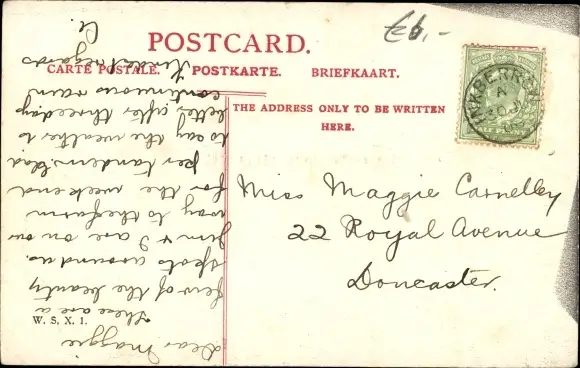 €6,-
POSTCARD.
CARTE POSTALE. POSTKARTE. BRIEFKAART.
THE ADDRESS ONLY TO BE WRITTEN
HERE.
INKBERROW
A
Miss Maggie Carnelley
22 Royal Avenue
Doncaster.
W. S. X. 1.
Dear Maggie
These are a
few of the beauty
spots around us.
Jim & I are on our
way to the farm
for the week end
per tandem. Glad
to say the weather is
better after three days
continuous rain
Kindest regards